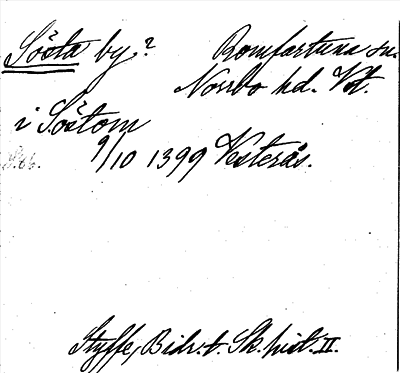 Sösta by? Romfartuna sn.
Norrbo hd. Vstm.
i Söstom
9/10 1399 Vesterås.
S. 66.
Styffe, Bidr. t. Sk. hist. II.